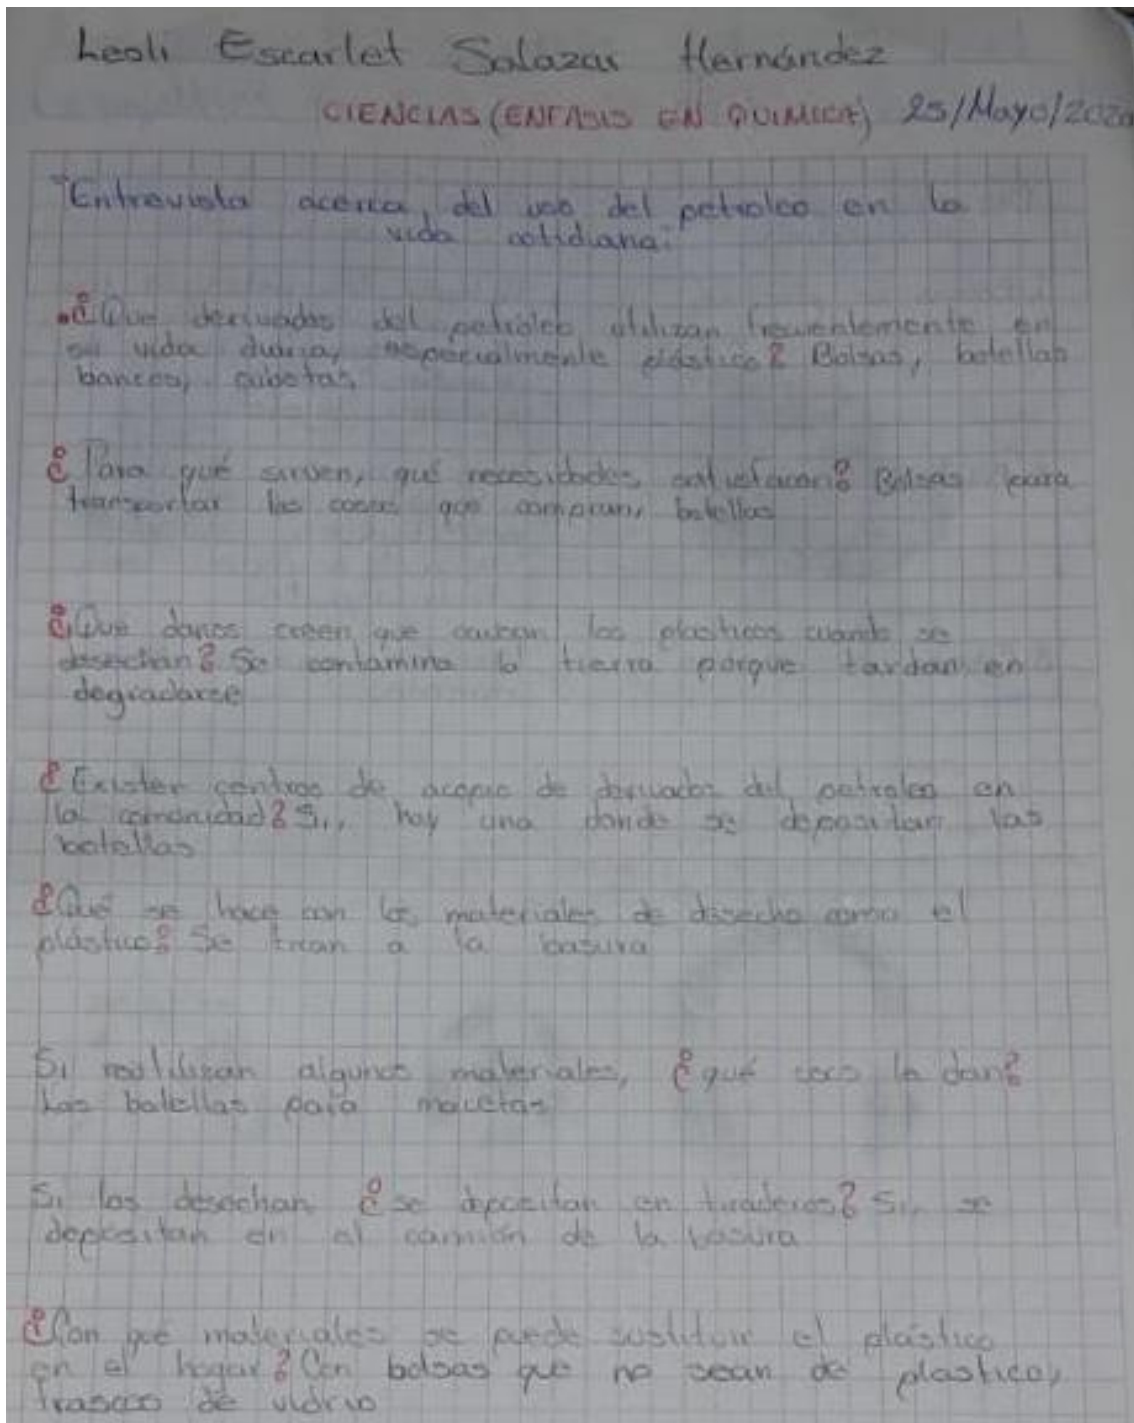 Leoli Escarlet Salazar Hernández
CIENCIAS (ENFASIS EN QUIMICA) 25/Mayo/2020
"Entrevista acerca, del uso del petroleo en la
vida cotidiana"
¿Que derivados del petroleo utilizan frecuentemente en
su vida diaria, especialmente plástico? Bolsas, botellas
bancos, cubetas
¿Para qué sirven, qué necesidades satisfacen? Bolsas para
transportar las cosas que compran, botellas
¿Que danos creen que causan los plasticos cuando se
desechan? Se contamina la tierra porque tardan en
degradarse
¿Existen centros de acopio de derivados del petroleo en
la comunidad? Si, hay una donde se depositan las
botellas
¿Qué se hace con los materiales de desecho como el
plástico? Se tiran a la basura
Si reutilizan algunos materiales, ¿qué usos le dan?
Las botellas para macetas
Si los desechan ¿se depositan en tiraderos? Si, se
depositan en el camión de la basura
¿Con que materiales se puede sustituir el plástico
en el hogar? Con bolsas que no sean de plastico,
frascos de vidrio